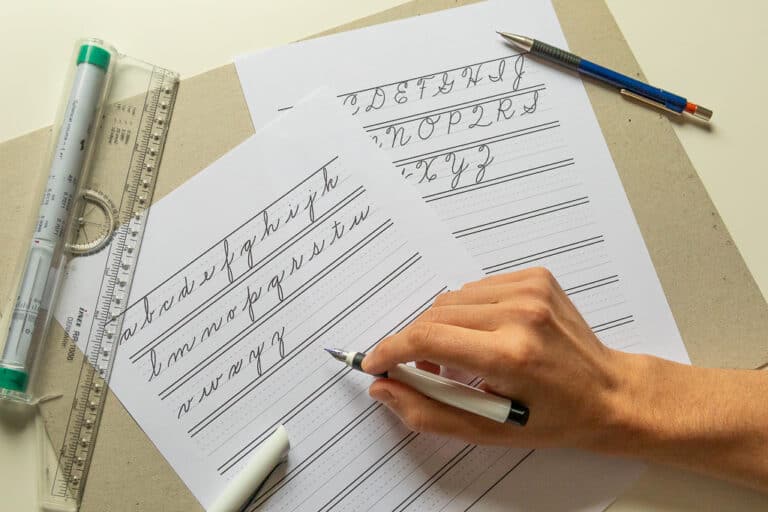 D E F G H I J
N O P Q R S
X Y Z
a b c d e f g h i j k
l m n o p q r s t u
v w x y z